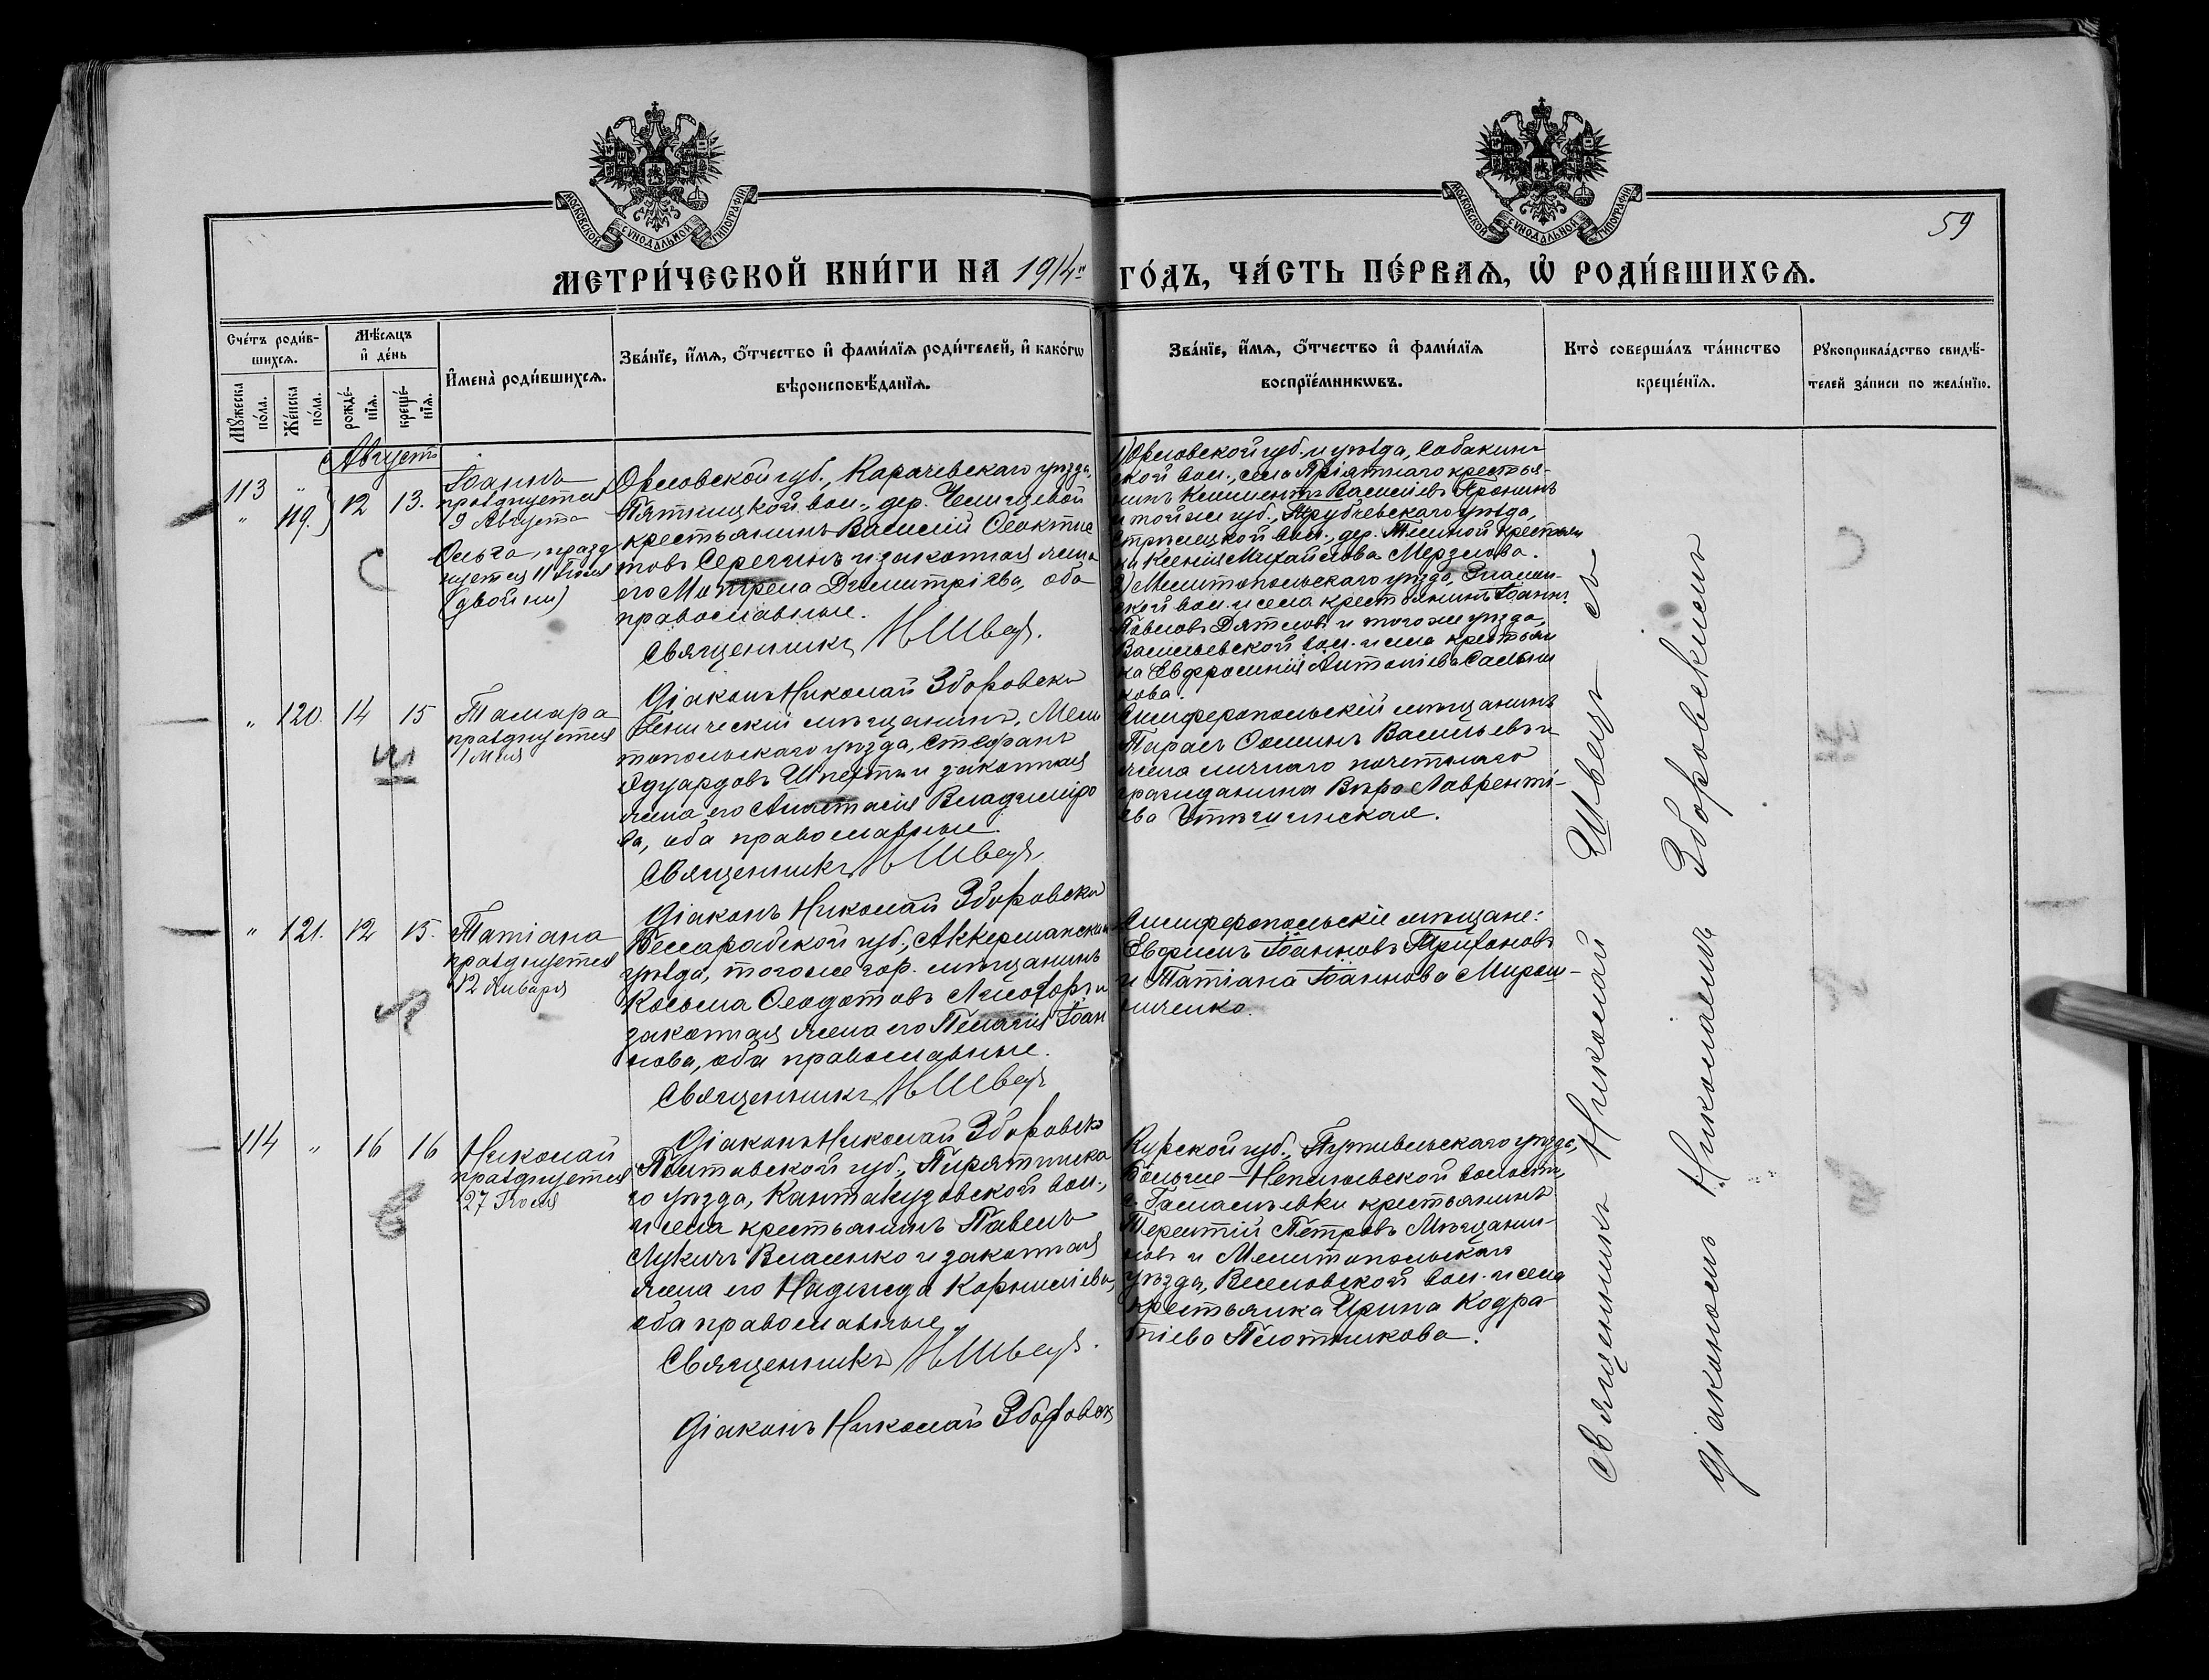 МОСКОВСКОЙ СУНОДАЛЬНОЙ ТИПОГРАФІИ
МОСКОВСКОЙ СУНОДАЛЬНОЙ ТИПОГРАФІИ
59
МЕТРИ́ЧЕСКОЙ КНИ́ГИ НА 1914й ГО́ДЪ, ЧА́СТЬ ПЕ́РВАѦ, Ѡ РОДИ́ВШИХСѦ.
Счетъ родив-
шихся.
Мꙋжеска
пола.
Женска
пола.
Мѣсяцъ
и день
рожде-
нїя.
креще-
нїя.
Имена родившихся.
Званїе, имя, отчество и фамилїя родителей, и какогѡ
вѣроисповѣданїя.
Званїе, имя, отчество и фамилїя
воспрїемникѡвъ.
Кто совершалъ таинство
крещенїя.
Рꙋкоприкладство свидѣ-
телей записи по желанїю.
Августъ
113 "
" 119.
12 13.
Іоаннъ
празднуется
9 Августа
Ольга, празд
нуется 11 Іюля
(двойни)
Орловской губ., Карачевскаго уѣзда,
Пятницкой вол., дер.
крестьянинъ Василій Ѳеоктис
товъ Серегинъ и законная жена
его Матрена Димитріева, оба
православные.
Священникъ Н Швецъ.
Діаконъ Николай Зборовскі
1) Орловской губ. и уѣзда, Собакин
ской вол., села Пріятнаго крестья-
нинъ Климентъ Васильевъ Пронинъ
и той же губ., Трубчевскаго уѣзда,
Стрѣлецкой вол., дер. крестьян
ка Ксенія Михайлова Мерзлова.
2) Мелитопольскаго уѣзда, Знамен-
ской вол. и села крестьянинъ Іоаннъ
Павловъ Дятловъ и того же уѣзда,
Васильевской вол. и села крестьян
ка Евфросинія Антоніева Сальни
кова.
" 120. 14 15
Тамара
празднуется
1 Мая
Геническій мѣщанинъ, Мели
топольскаго уѣзда, Стефанъ
Эдуардовъ и законная
жена его Анастасія Владиміро
ва, оба православные.
Священникъ Н Швецъ
Діаконъ Николай Зборовскі
Симферопольскій мѣщанинъ
Тарасъ Ѳоминъ Васильевъ и
жена личнаго почетнаго
гражданина Вѣра Лавренті-
ева
" 121. 12 15.
Татіана
празднуется
12 Января
Бессарабской губ., Аккерманскаго
уѣзда, того же гор. мѣщанинъ
Косьма Ѳеодотовъ и
законная жена его Пелагія Іоан
нова, оба православные.
Священникъ Н Швецъ
Діаконъ Николай Зборовскі
Симферопольскіе мѣщане:
Евфимъ Іоанновъ Трифоновъ
и Татіана Іоаннова Мирош-
ниченко.
114 " 16 16
Николай
празднуется
27 Іюля
Полтавской губ., Пирятинска
го уѣзда, Кантакузовской вол.,
и села крестьянинъ Павелъ
Лукичъ Власенко и законная
жена его Надежда Корниліева,
оба православные.
Священникъ Н Швецъ.
Діаконъ Николай Зборовск
Курской губ., Путивльскаго уѣзда,
Больше-Неплюевской волости,
крестьянинъ
Терентій Петровъ Мѣщани-
новъ и Мелитопольскаго
уѣзда, Веселовской вол. и села
крестьянка Ирина Кодра-
тіева Плотникова.
Священникъ Николай Швецъ съ
Діакономъ Николаемъ Зборовскимъ